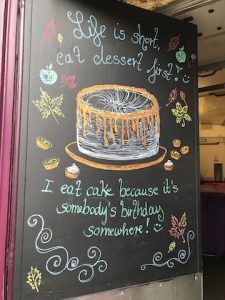 Life is short,
eat dessert
first!
I eat cake because it's
somebody's birthday
somewhere!